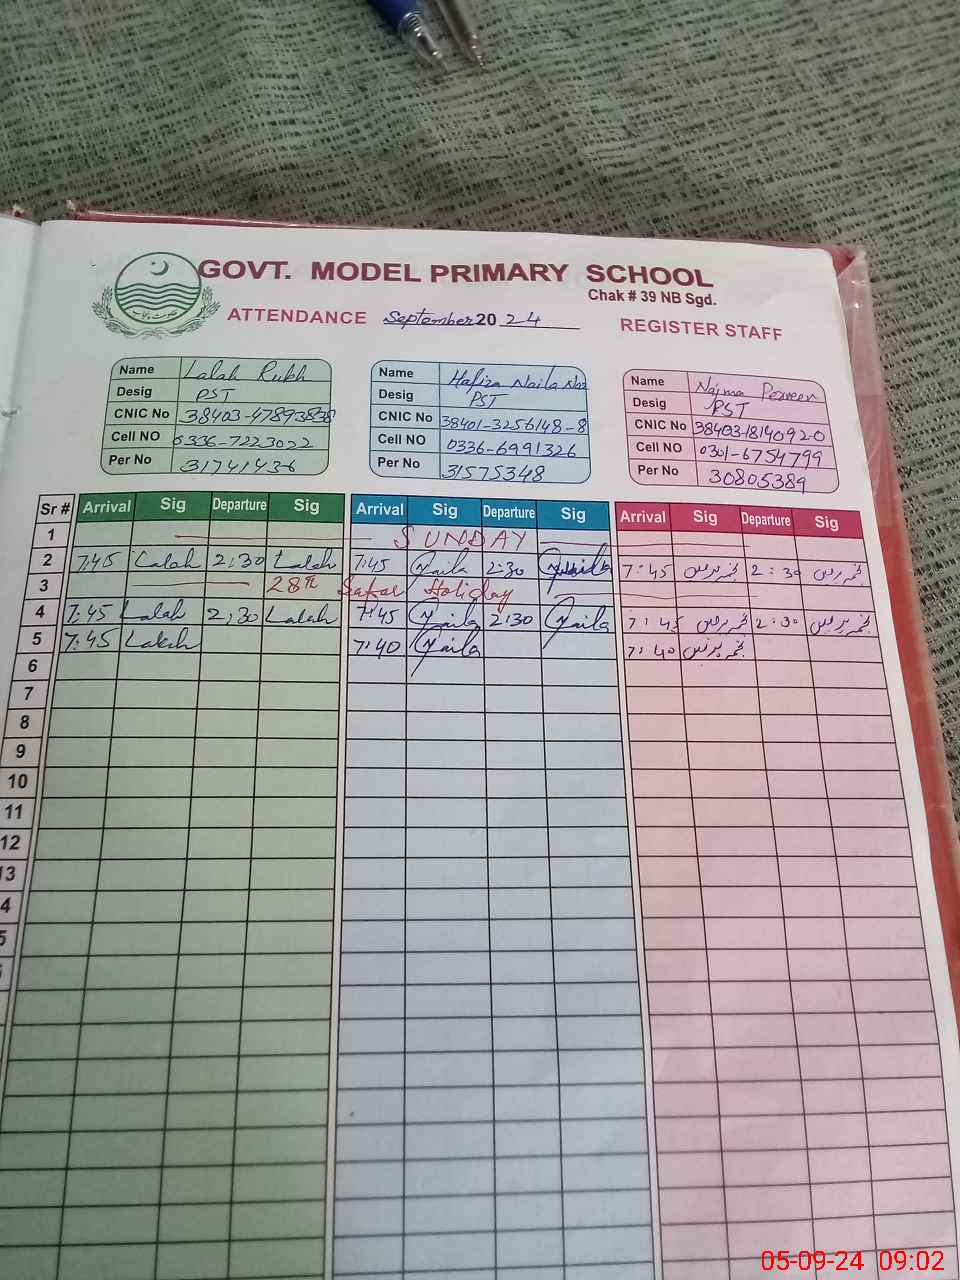 GOVT. MODEL PRIMARY SCHOOL
Chak # 39 NB Sgd.
ATTENDANCE September 20 24 REGISTER STAFF
حکومت پنجاب
Name Lalah Rukh
Desig PST
CNIC No 38403-47893838
Cell NO 0336-7223022
Per No 31741436
Name Hafiza Naila Naz
Desig PST
CNIC No 38401-3256148-8
Cell NO 0336-6991326
Per No 31575348
Name Najma Perveen
Desig PST
CNIC No 38403-1814092-0
Cell NO 0301-6754799
Per No 30805389
Sr # Arrival Sig Departure Sig Arrival Sig Departure Sig Arrival Sig Departure Sig
1 SUNDAY
2 7:45 Lalah 2:30 Lalah 7:45 Naila 2:30 Naila 7:45 نجمہ پروین 2:30 نجمہ پروین
3 28th Safar Holiday
4 7:45 Lalah 2:30 Lalah 7:45 Naila 2:30 Naila 7:45 نجمہ پروین 2:30 نجمہ پروین
5 7:45 Lalah 7:40 Naila 7:40 نجمہ پروین
6
7
8
9
10
11
12
13
4
5
05-09-24 09:02